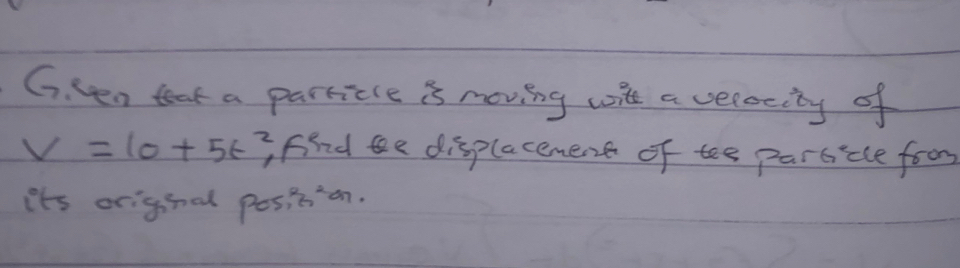 Given that a particle is moving with a velocity of
V = 10 + 5t², find the displacement of the particle from
its original position.